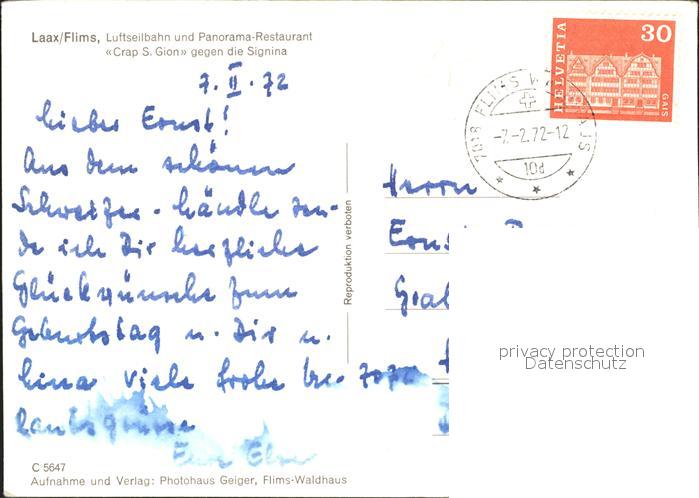 Laax/Flims, Luftseilbahn und Panorama-Restaurant
«Crap S. Gion» gegen die Signina
7. II. 72
Lieber Ernst!
Aus dem schönen
Schweizer-Ländle sen-
de ich Dir herzliche
Glückwünsche zum
Geburtstag u. Dir u.
Lina viele frohe
Eure Elsa
C 5647
Aufnahme und Verlag: Photohaus Geiger, Flims-Waldhaus
Reproduktion verboten
HELVETIA
30
GAIS
7018 FLIMS
-7.-2.72-12
Herrn
privacy protection
Datenschutz